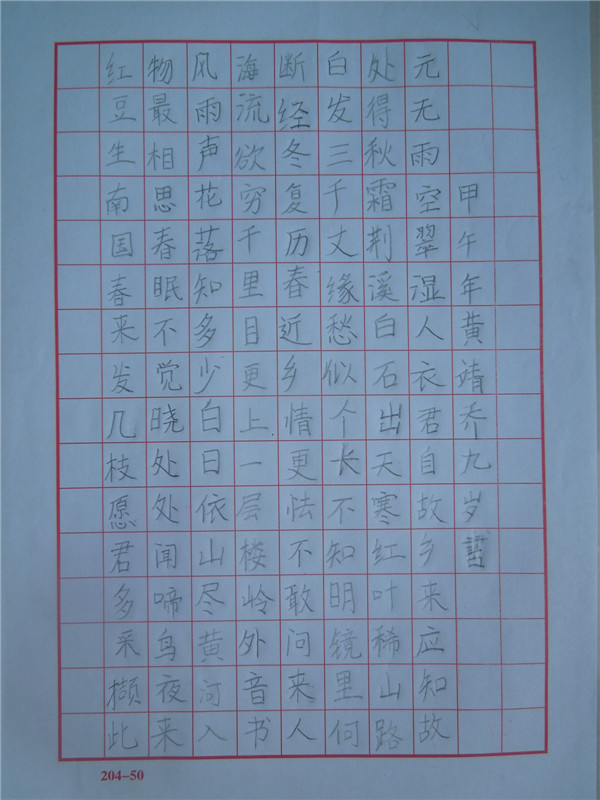 红豆生南国春来发几枝愿君多采撷此
物最相思春眠不觉晓处处闻啼鸟夜来
风雨声花落知多少白日依山尽黄河入
海流欲穷千里目更上一层楼岭外音书
断经冬复历春近乡情更怯不敢问来人
白发三千丈缘愁似个长不知明镜里何
处得秋霜荆溪白石出天寒红叶稀山路
元无雨空翠湿人衣君自故乡来应知故
甲午年黄靖乔九岁書
204-50